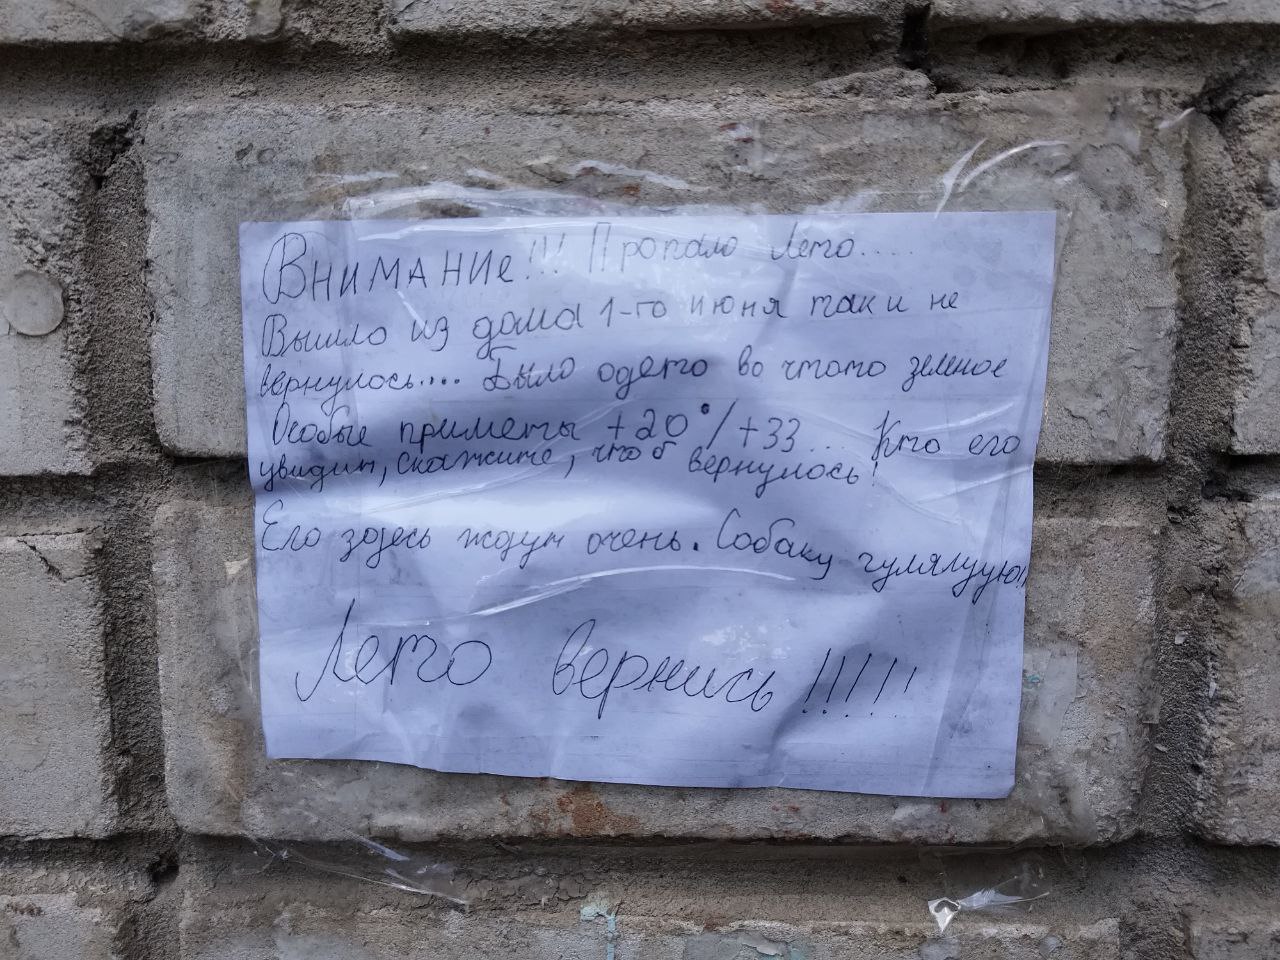 ВНИМАНИе!!! Пропало Лето.....
Вышло из дома 1-го июня так и не
вернулось.... Было одето во чтото зеленое
Особые приметы +20°/+33... Кто его
увидит, скажите, чтоб вернулось!
Его здесь ждут очень. Собаку
Лето вернись!!!!!